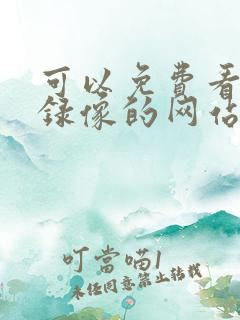 可以免费看
录像的网站
叮當喵1
未经同意禁止转载